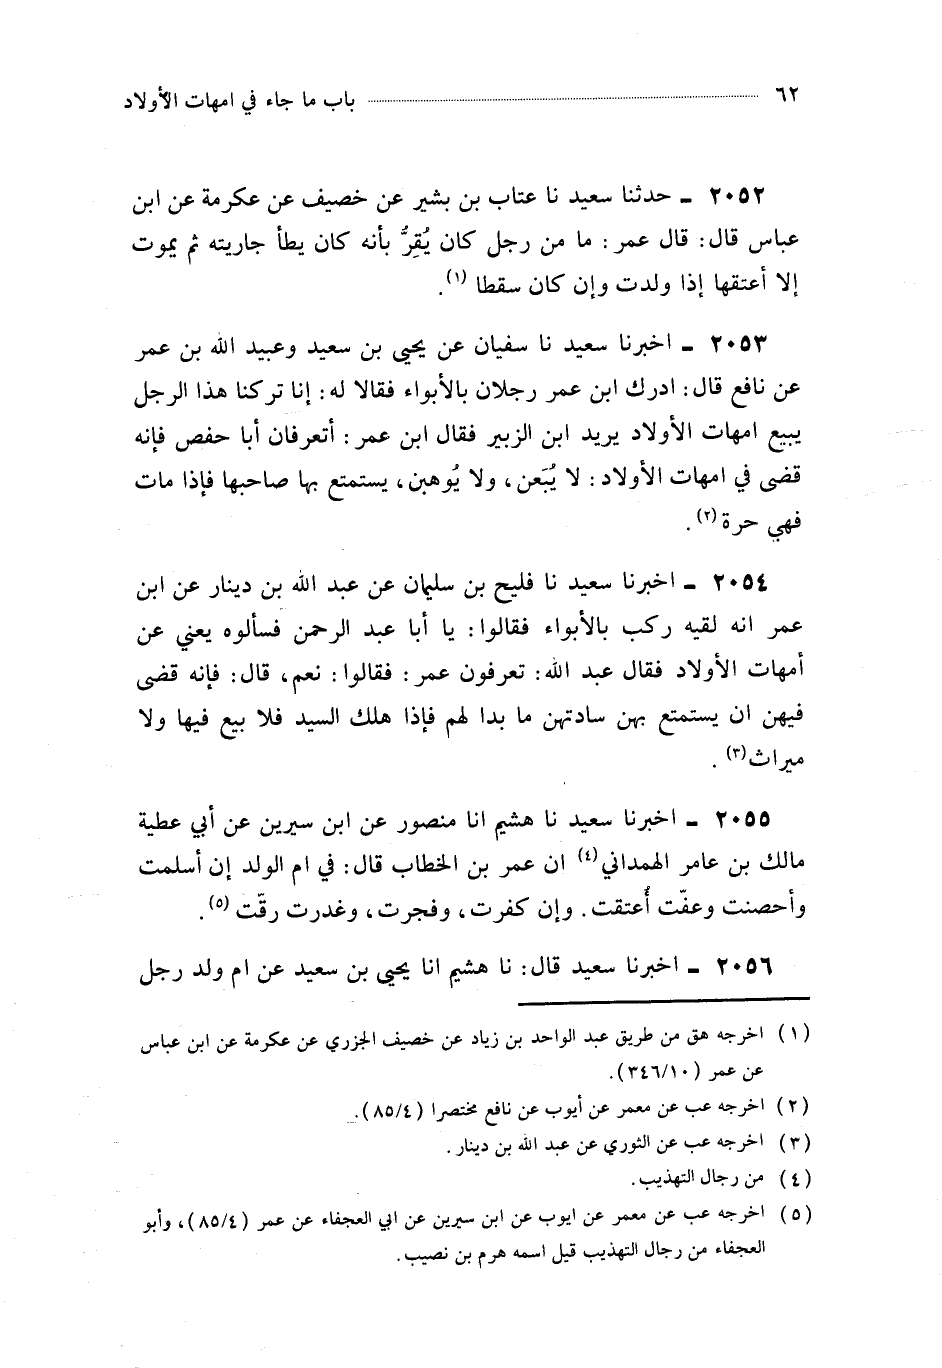 ٦٢ ........ باب ما جاء في امهات الأولاد
٢٠٥٢ ـ حدثنا سعيد نا عتاب بن بشير عن خصيف عن عكرمة عن ابن
عباس قال: قال عمر: ما من رجل كان يُقِرُّ بأنه كان يطأ جاريته ثم يموت
إلا أعتقها إذا ولدت وإن كان سقطا (١).
٢٠٥٣ ـ اخبرنا سعيد نا سفيان عن يحيى بن سعيد وعبيد الله بن عمر
عن نافع قال: ادرك ابن عمر رجلان بالأبواء فقالا له: إنا تركنا هذا الرجل
يبيع امهات الأولاد يريد ابن الزبير فقال ابن عمر: أتعرفان أبا حفص فإنه
قضى في امهات الأولاد: لا يُبَعن، ولا يُوهبن، يستمتع بها صاحبها فإذا مات
فهي حرة (٢).
٢٠٥٤ ـ اخبرنا سعيد نا فليح بن سليمان عن عبد الله بن دينار عن ابن
عمر انه لقيه ركب بالأبواء فقالوا: يا أبا عبد الرحمن فسألوه يعني عن
أمهات الأولاد فقال عبد الله: تعرفون عمر: فقالوا: نعم، قال: فإنه قضى
فيهن ان يستمتع بهن سادتهن ما بدا لهم فإذا هلك السيد فلا بيع فيها ولا
ميراث (٣).
٢٠٥٥ ـ اخبرنا سعيد نا هشيم انا منصور عن ابن سيرين عن أبي عطية
مالك بن عامر الهمداني (٤) ان عمر بن الخطاب قال: في ام الولد إن أسلمت
وأحصنت وعفّت أُعتقت. وإن كفرت، وفجرت، وغدرت رقّت (٥).
٢٠٥٦ ـ اخبرنا سعيد قال: نا هشيم انا يحيى بن سعيد عن ام ولد رجل
(١) اخرجه هق من طريق عبد الواحد بن زياد عن خصيف الجزري عن عكرمة عن ابن عباس
عن عمر (٣٤٦/١٠).
(٢) اخرجه عب عن معمر عن أيوب عن نافع مختصرا (٨٥/٤).
(٣) اخرجه عب عن الثوري عن عبد الله بن دينار.
(٤) من رجال التهذيب.
(٥) اخرجه عب عن معمر عن ايوب عن ابن سيرين عن ابي العجفاء عن عمر (٨٥/٤)، وأبو
العجفاء من رجال التهذيب قيل اسمه هرم بن نصيب.